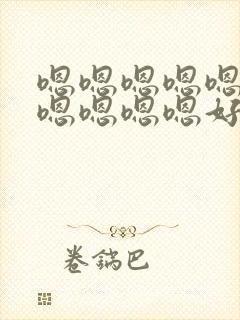 嗯嗯嗯嗯嗯
嗯嗯嗯嗯好
卷鍋巴